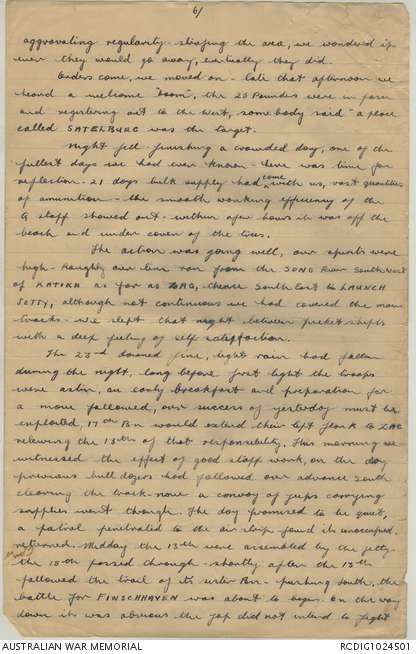 6/
aggravating regularity - strafing the area, we wonder'd if
ever they would go away, eventually they did.
Orders come, we moved on - late that afternoon we
heard a welcome "boom", the 25 Pounders were in posn
and registering out to the west, some body said "a place
called SATELBURG was the target.
Night fell - finishing a crowded day, one of the
fullest days we had ever known - there was time for
reflection - 21 days bulk supply had come with us, vast quantities
of amunition - the smooth working efficiency of the
Q staff showed out - within a few hours it was off the
beach and under cover of the trees.
The action was going well, our spirits were
high - Roughly our line ran from the SONG River South West
of KATIKA as far as ZAG, thence South East to LAUNCH
JETTY, although not continuous we had covered the main
tracks - we slept that night between picket shifts
with a deep feeling of self satisfaction.
The 23rd dawned fine, light rain had fallen
during the night, long before first light the troops
were astir, an early breakfast and preparation for
a move followed, our success of yesterday must be
exploited, 17th Bn would extend their left flank to ZAG
relieving the 13th of that responsibility. This morning we
witnessed the effect of good staff work, on the day
previous bull dozers had followed our advance South
clearing the track - now a convoy of jeeps carrying
supplies went through. The day promised to be quiet,
a patrol penetrated to the air strip found it unoccupied.
returned. Midday the 13th were assembled by the jetty
the 15th passed through - shortly after the 13th
followed the trail of its sister Bn - pushing South, the
battle for FINSCHHAVEN was about to begin. On the way
down it was obvious the Jap did not intend to fight
AUSTRALIAN WAR MEMORIAL
RCDIG1024501